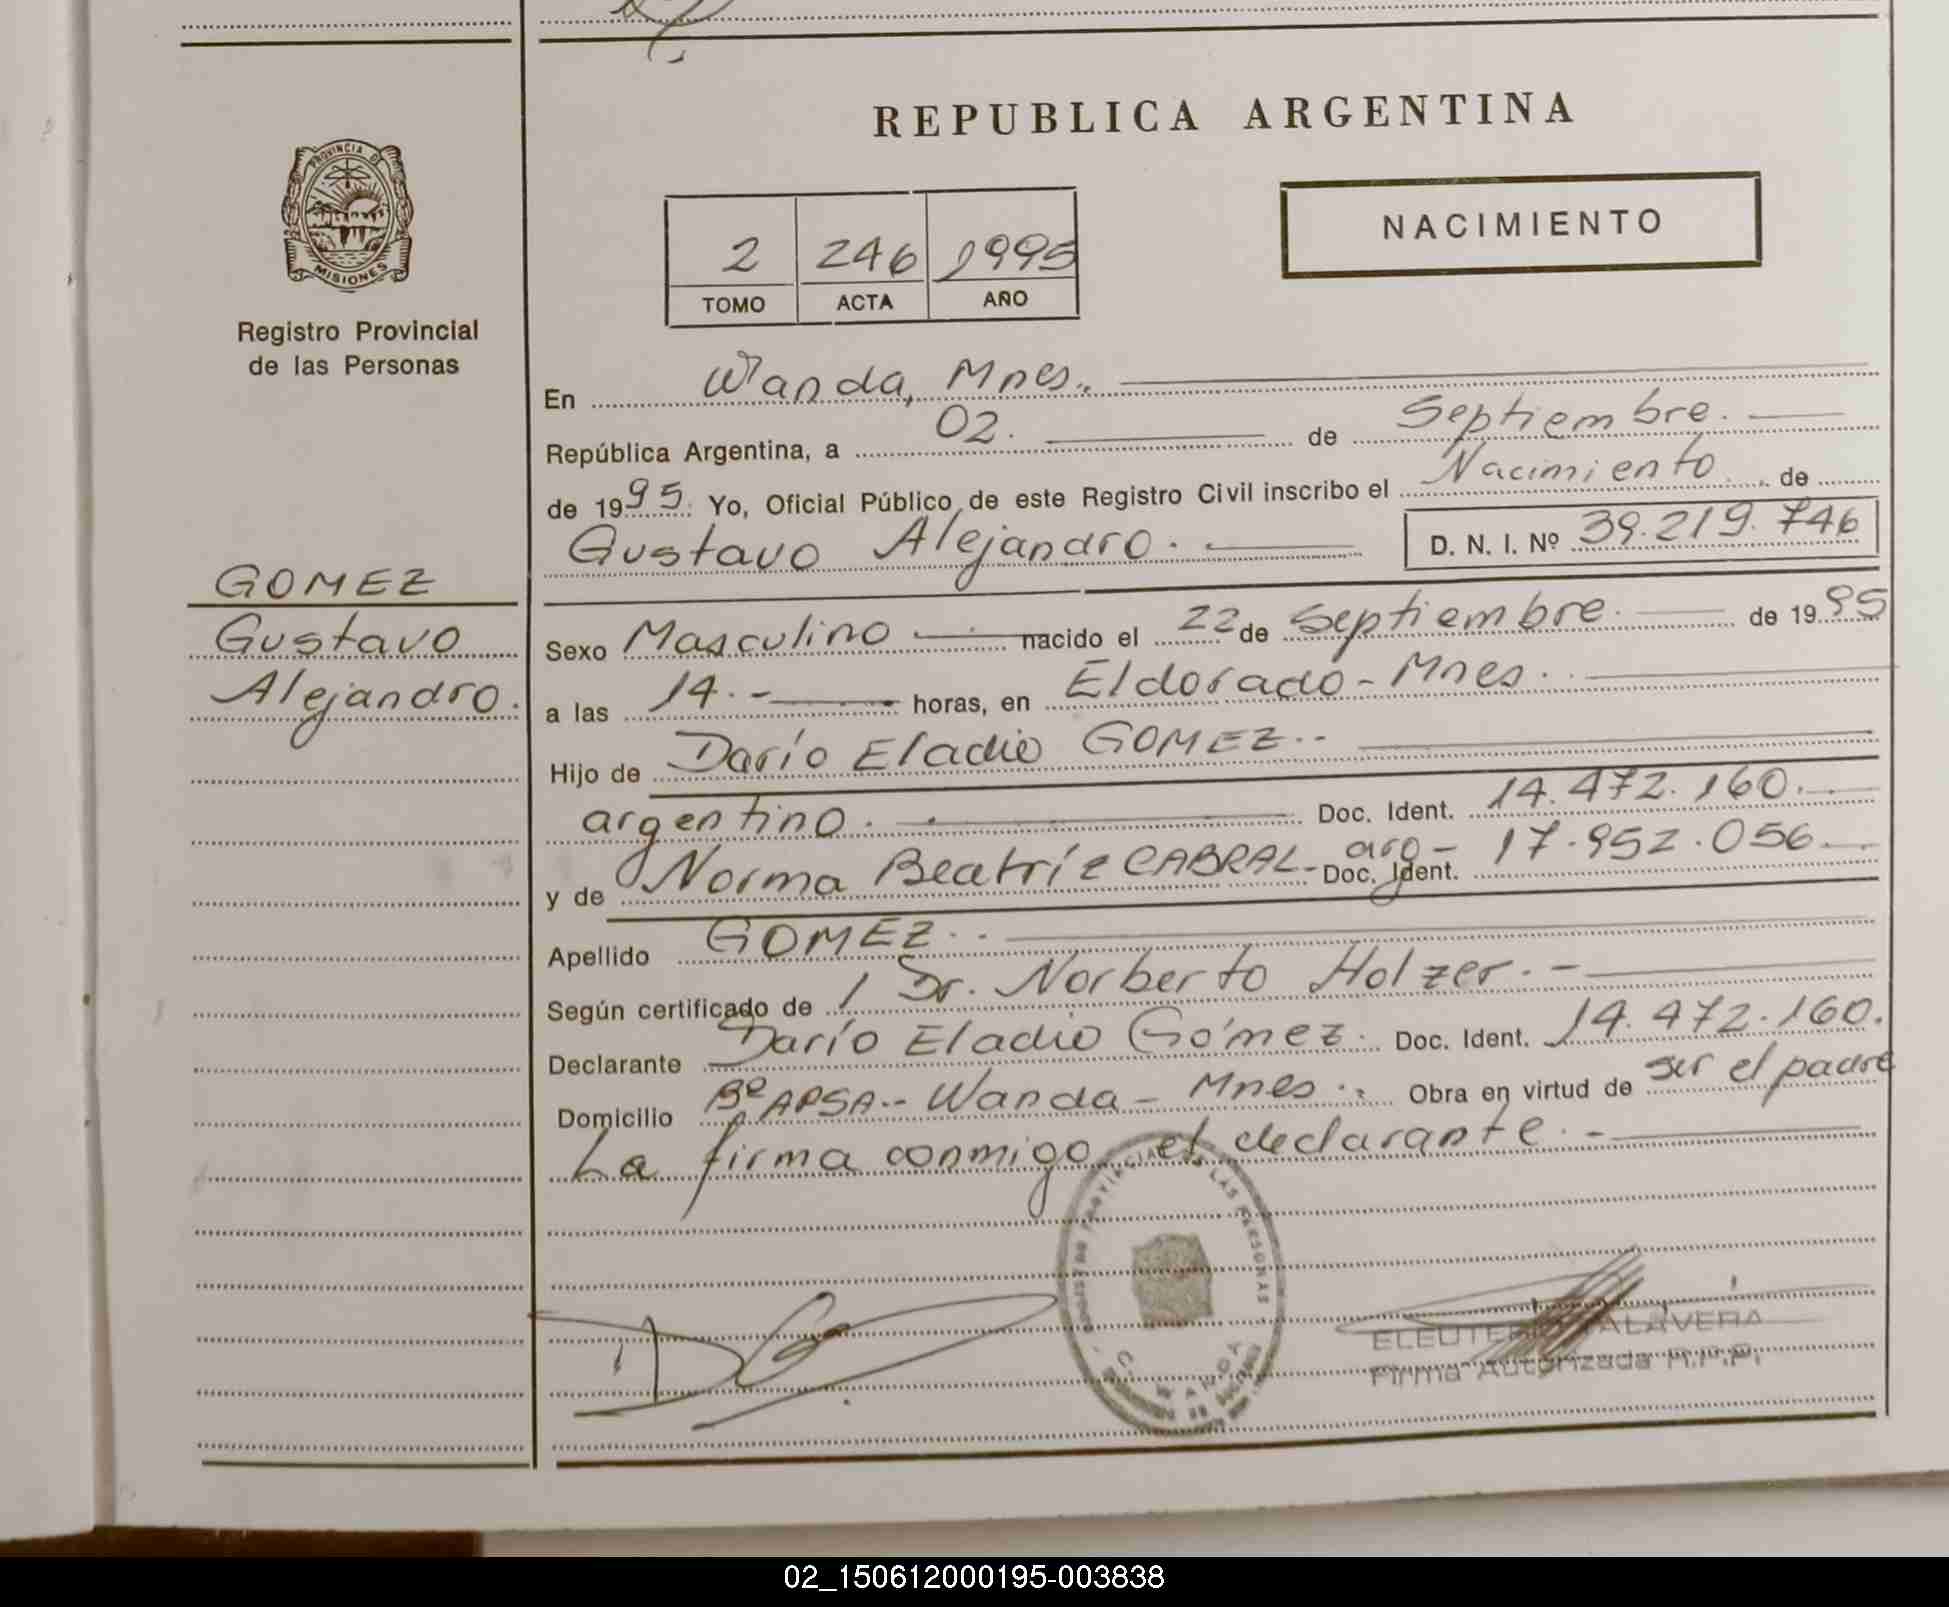 REPUBLICA ARGENTINA
PROVINCIA DE
MISIONES
Registro Provincial
de las Personas
NACIMIENTO
2 246 1995
TOMO ACTA AÑO
En Wanda, Mnes.
República Argentina, a 02. de Septiembre.
de 1995. Yo, Oficial Público de este Registro Civil inscribo el Nacimiento de
Gustavo Alejandro. D. N. I. Nº 39.219.746
GOMEZ
Gustavo
Alejandro.
Sexo Masculino nacido el 22 de Septiembre de 1995
a las 14.- horas, en Eldorado - Mnes.
Hijo de Darío Eladio GOMEZ..
argentino. Doc. Ident. 14.472.160.
y de Norma Beatríz CABRAL- arg- Doc. Ident. 17.952.056.
Apellido GOMEZ..
Según certificado de 1 Dr. Norberto Holzer.-
Declarante Darío Eladio Gómez. Doc. Ident. 14.472.160.
Domicilio Bº APSA.- Wanda - Mnes. Obra en virtud de ser el padre
La firma conmigo el declarante.-
PROVINCIAL DE LAS PERSONAS
WANDA
ELEUTERIO TALAVERA
Firma Autorizada R.P.P.
02_150612000195-003838